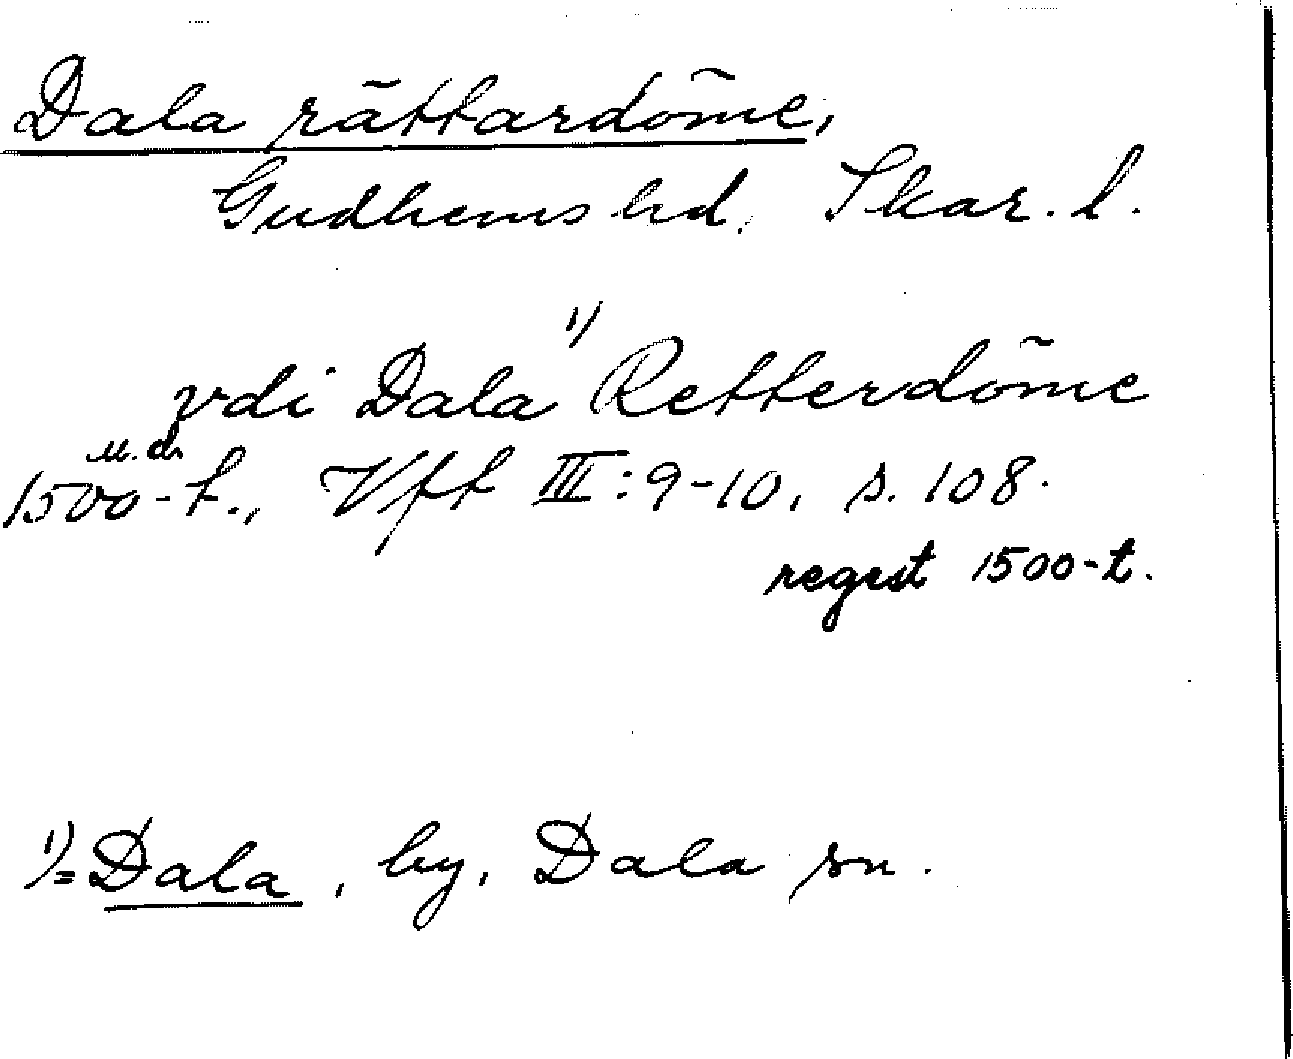 Dala rättardöme,
Gudhems hd. Skar. l.
vdi Dala 1) Retterdöme
u. d.
1500-t., Vft III:9-10, s. 108.
regest 1500-t.
1)= Dala, by, Dala sn.